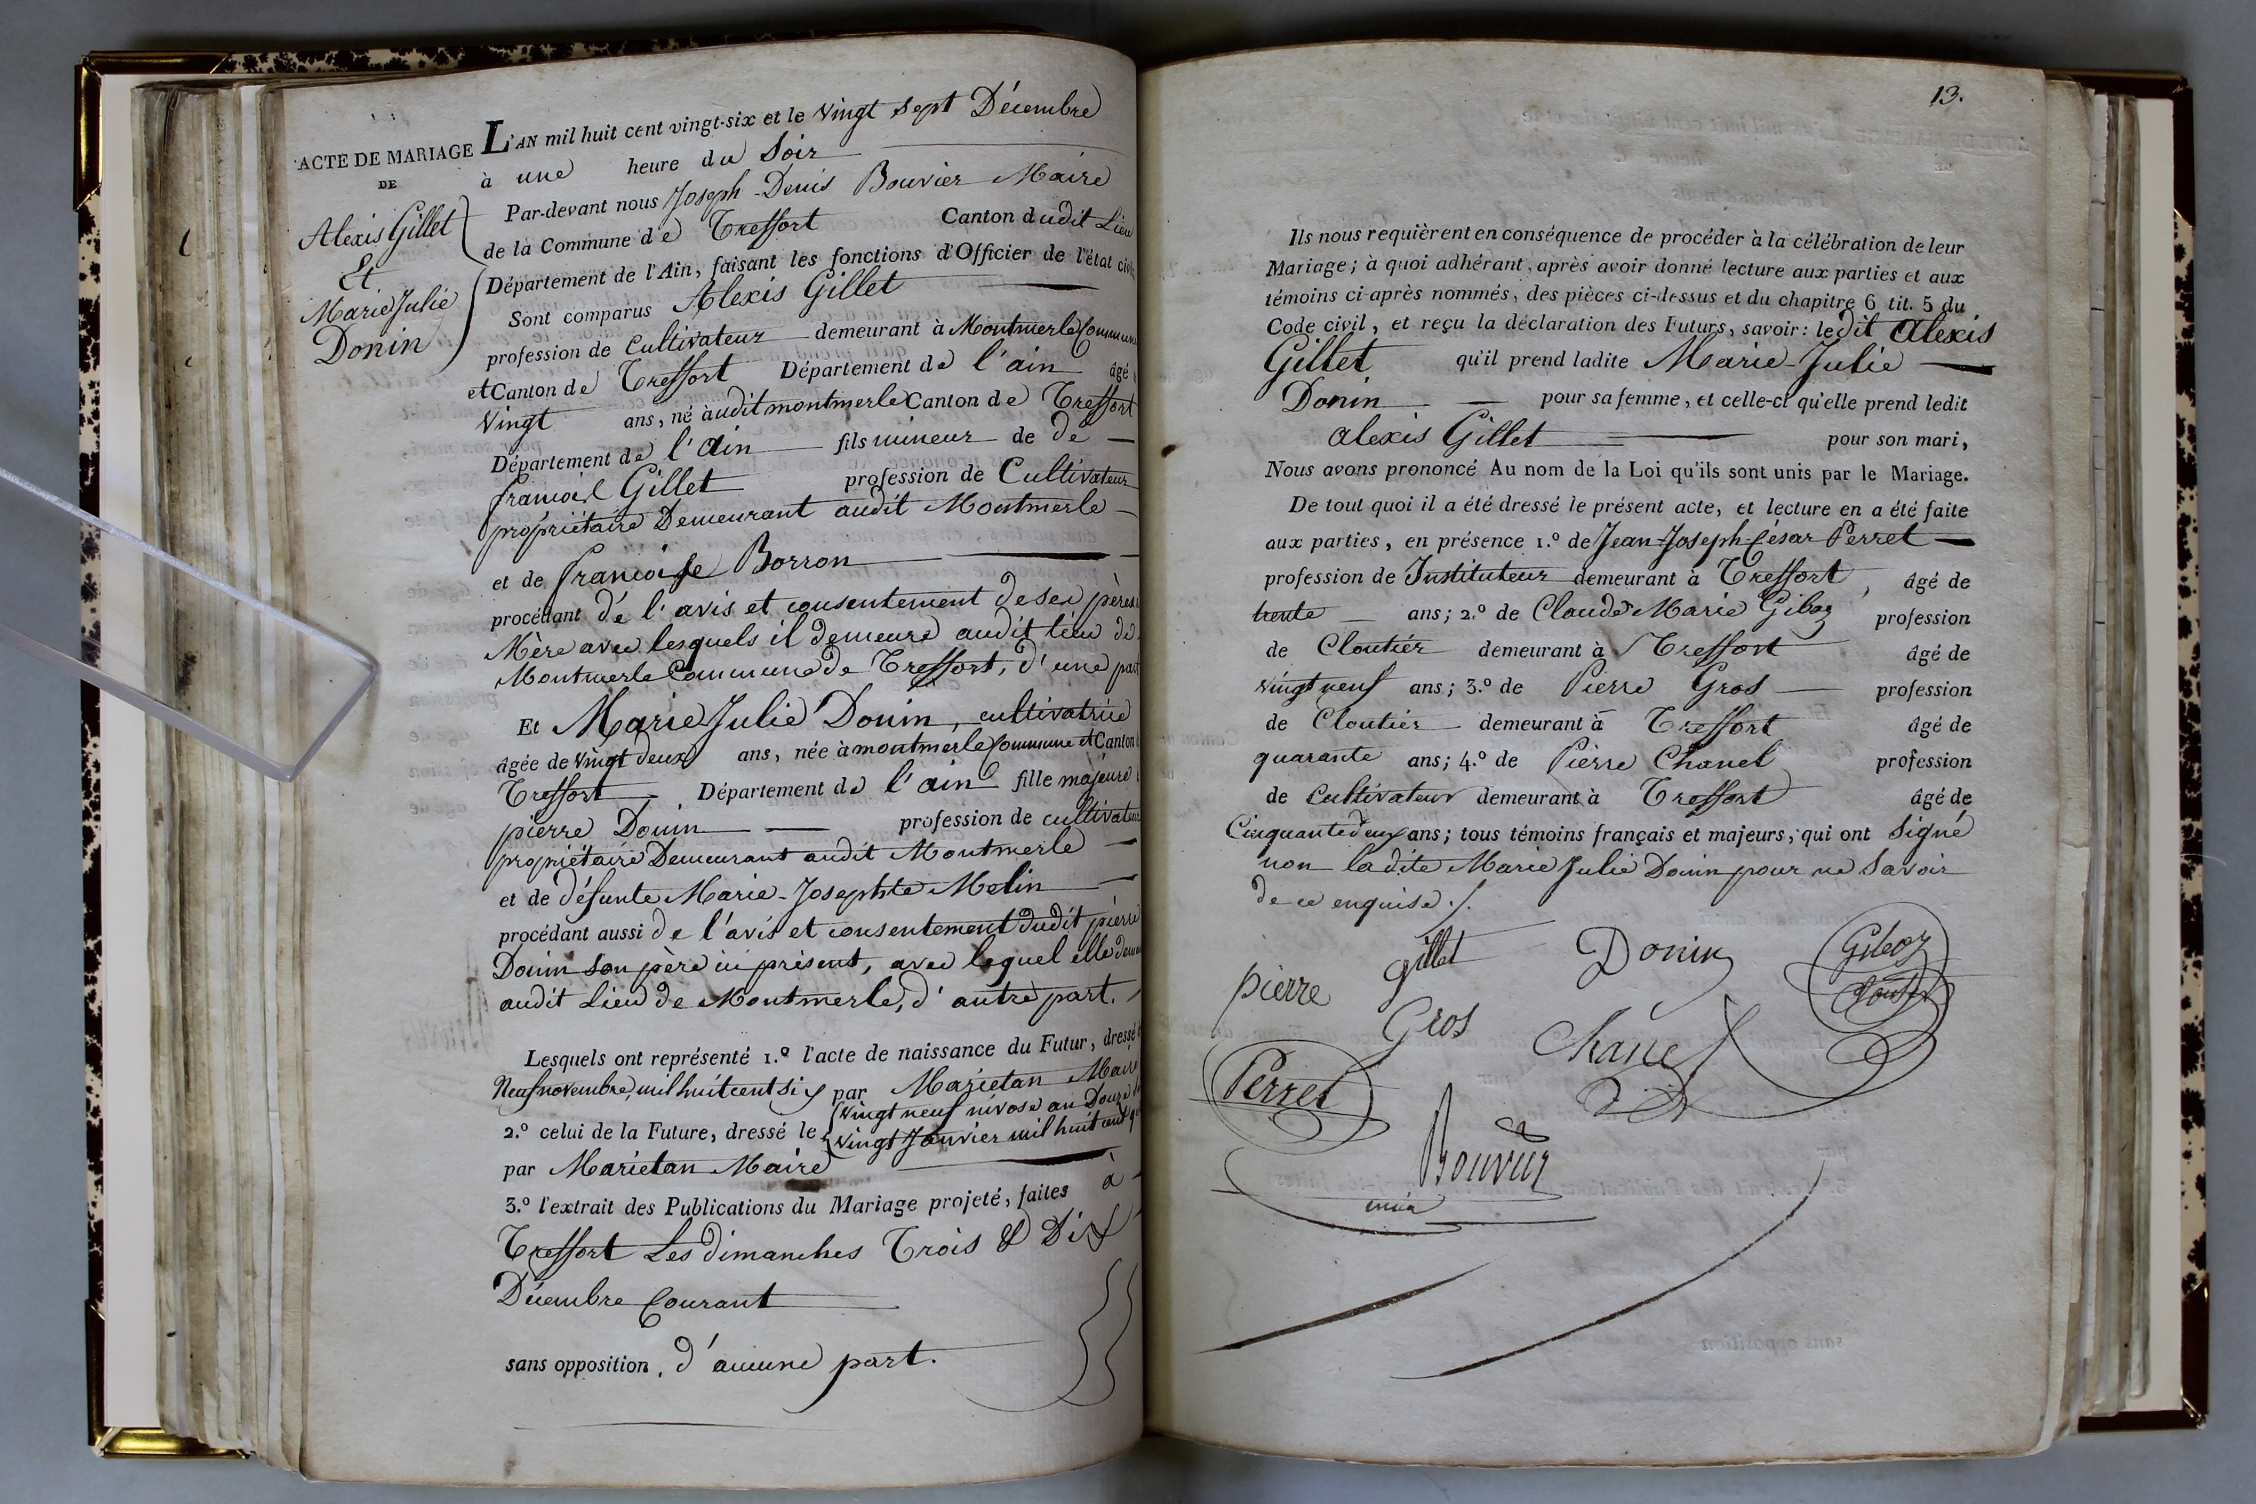 ACTE DE MARIAGE
DE
Alexis Gillet
Et
Marie Julie
Donin
L'AN mil huit cent vingt-six et le vingt sept Décembre
à une heure du Soir
Par-devant nous Joseph-Denis Bouvier Maire
de la Commune de Treffort Canton dudit Lieu
Département de l'Ain, faisant les fonctions d'Officier de l'état civil
Sont comparus Alexis Gillet
profession de Cultivateur demeurant à Montmerle Commune
et Canton de Treffort Département de l'ain âgé
Vingt ans, né àudit montmerle Canton de Treffort
Département de l'Ain fils mineur de de
francois Gillet profession de Cultivateur
propriétaire Demeurant audit Montmerle
et de francoise Borron
procédant de l'avis et consentement de ses pères
Mère avec lesquels il demeure audit lieu de
Montmerle Commune de Treffort, d'une part
Et Marie Julie Donin, cultivatrice
âgée de vingt deux ans, née à montmerle Commune et Canton
Treffort Département de l'ain fille majeure
pierre Donin profession de cultivateur
propriétaire Demeurant audit Montmerle
et de défunte Marie-Josephte Melin
procédant aussi de l'avis et consentement dudit pierre
Donin son père ici présent, avec lequel elle
audit Lieu de Montmerle, d'autre part.
Lesquels ont représenté 1.º l'acte de naissance du Futur, dressé
Neuf novembre, mil huit cent six par Marietan Maire
2.º celui de la Future, dressé le vingt neuf nivose an Douze
vingt Janvier mil huit cent
par Marietan Maire
3.º l'extrait des Publications du Mariage projeté, faites à
Treffort Les dimanches Trois & Dix
Décembre Courant
sans opposition. d'aucune part.
13.
Ils nous requièrent en conséquence de procéder à la célébration de leur
Mariage; à quoi adhérant, après avoir donné lecture aux parties et aux
témoins ci-après nommés, des pièces ci-dessus et du chapitre 6 tit. 5 du
Code civil, et reçu la déclaration des Futurs, savoir: ledit Alexis
Gillet qu'il prend ladite Marie-Julie
Donin pour sa femme, et celle-ci qu'elle prend ledit
alexis Gillet pour son mari,
Nous avons prononcé Au nom de la Loi qu'ils sont unis par le Mariage.
De tout quoi il a été dressé le présent acte, et lecture en a été faite
aux parties, en présence 1.º de Jean-Joseph-César Perret
profession de Instituteur demeurant à Treffort, âgé de
trente ans; 2.º de Claude Marie Giboz profession
de Cloutier demeurant à Treffort âgé de
vingt neuf ans; 3.º de Pierre Gros profession
de Cloutier demeurant à Treffort âgé de
quarante ans; 4.º de Pierre Chanel profession
de Cultivateur demeurant à Treffort âgé de
Cinquante deux ans; tous témoins français et majeurs, qui ont signé
non la dite Marie Julie Donin pour ne savoir
de ce enquise ./.
gillet Donin Giboz
pierre Gros Chanel
Perret
Bouvier